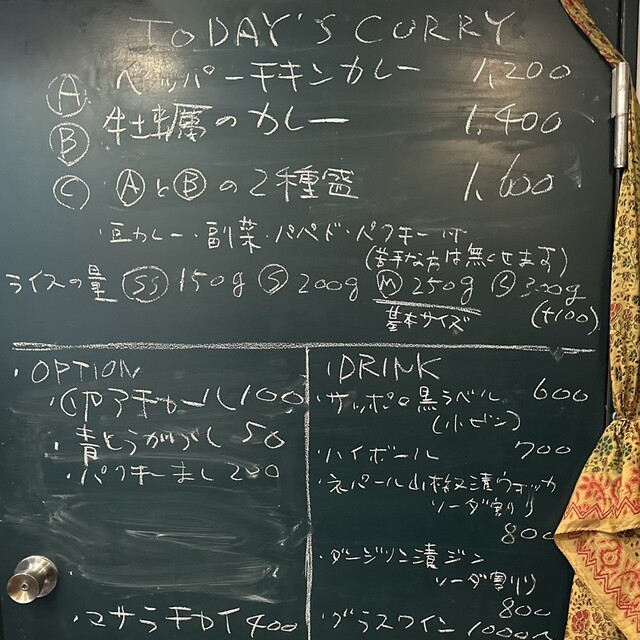 TODAY'S CURRY
Ⓐ ペッパーチキンカレー 1,200
Ⓑ 牡蠣のカレー 1,400
Ⓒ ⒶとⒷの2種盛 1,600
・豆カレー・副菜・パパド・パクチー付
(苦手な方は無しにできます)
ライスの量 ⓈⓈ150g Ⓢ200g Ⓜ250g Ⓛ300g
基本サイズ (+100)
・OPTION
・アチャール 100
・青とうがらし 50
・パクチーまし 200
・マサラチャイ 400
・DRINK
・サッポロ黒ラベル 600
(小ビン)
・ハイボール 700
・ネパール山椒漬ウォッカ
ソーダ割り
800
・ダージリン漬ジン
ソーダ割り
800
・グラスワイン 1000